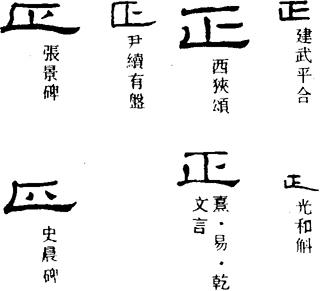 正
建武平合
正
西狹頌
正
尹續有盤
正
張景碑
正
光和斛
正
熹・易・乾
文言
正
史晨碑